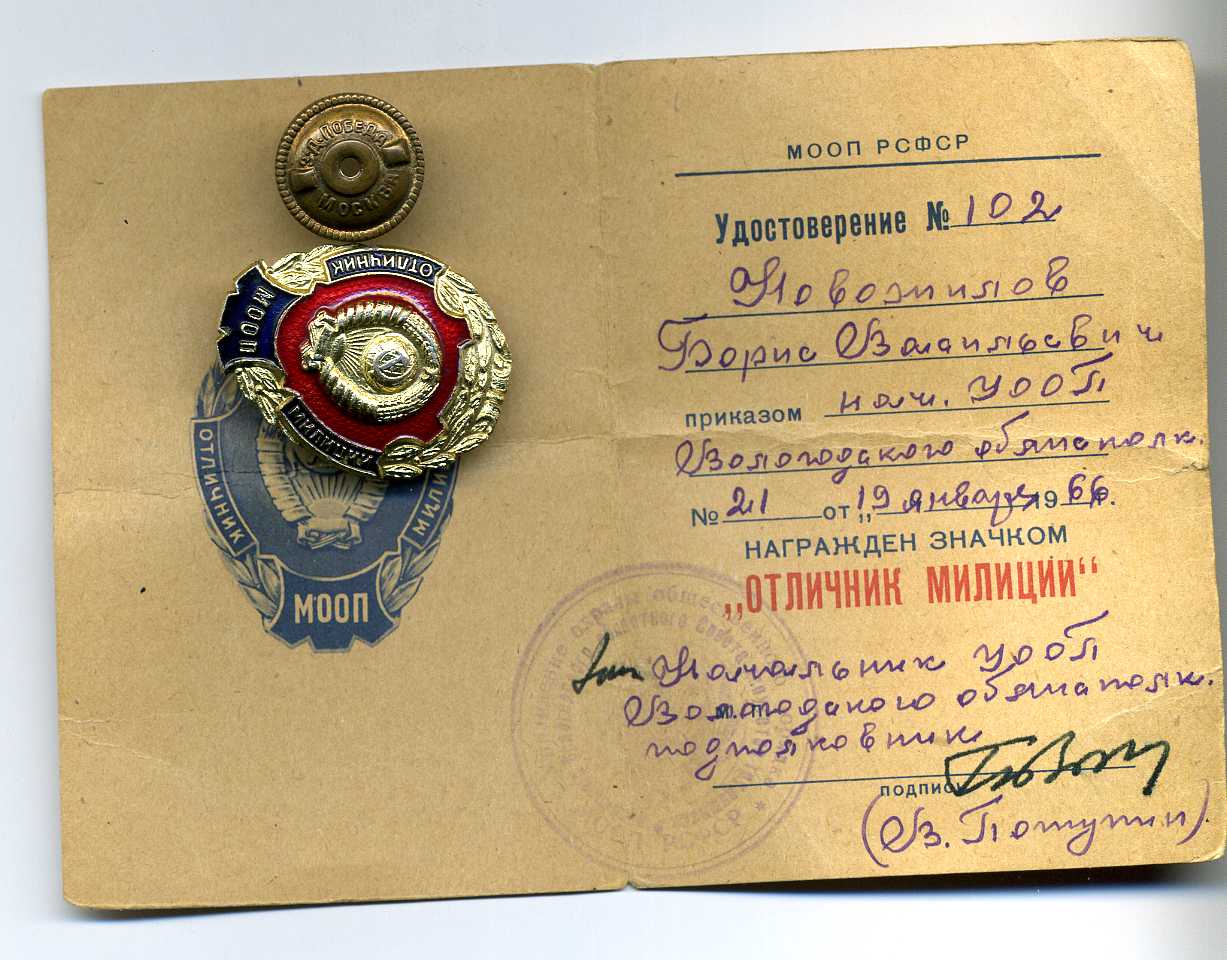 З-Д "ПОБЕДА"
МОСКВА
ОТЛИЧНИК
МООП
МИЛИЦИИ
ОТЛИЧНИК
МИЛИ
МООП
МООП РСФСР
Удостоверение № 102
Новожилов
Борис Васильевич
приказом нач. УООП
Вологодского облисполк.
№ 21 от „19 января 1966 г.
НАГРАЖДЕН ЗНАЧКОМ
„ОТЛИЧНИК МИЛИЦИИ“
Зам Начальник УООП
Вологодского облисполк.
м. п.
подполковник
подпись
(В. Потутин)